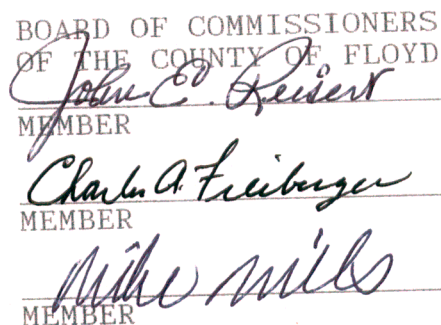 BOARD OF COMMISSIONERS
OF THE COUNTY OF FLOYD
John E. Reisert
MEMBER
Charles A. Freiberger
MEMBER
Mike Mills
MEMBER